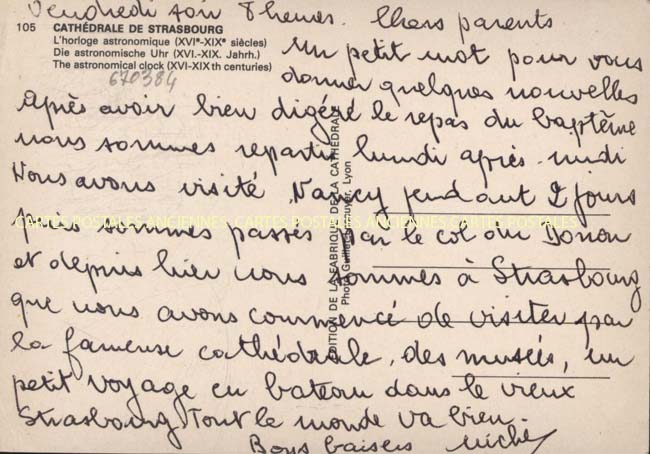 Vendredi soir 8 heures. Chers parents
105 CATHÉDRALE DE STRASBOURG
L'horloge astronomique (XVIe-XIXe siècles)
Die astronomische Uhr (XVI.-XIX. Jahrh.)
The astronomical clock (XVI-XIXth centuries)
670384
Un petit mot pour vous
donner quelques nouvelles
Après avoir bien digéré le repas du baptême
nous sommes repartis lundi après-midi
Nous avons visité Nancy pendant 2 jours
puis sommes passés par le col du Donon
et depuis hier nous sommes à Strasbourg
que nous avons commencé de visiter par
la fameuse cathédrale, des musées, un
petit voyage en bateau dans le vieux
Strasbourg. Tout le monde va bien.
Bons baisers Michel
ÉDITION DE LA FABRIQUE DE LA CATHÉDRALE
Photo Lyon
CARTES POSTALES ANCIENNES CARTES POSTALES ANCIENNES CARTES POSTALES